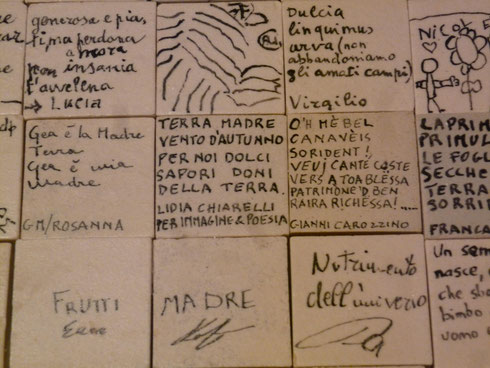 generosa e pia,
ti mia perdona
a mora
insania
t'avvelena
→ LUCIA
Dulcia
linquimus
arva (non
abbandoniamo
gli amati campi)
Virgilio
NICOL
Gea è la Madre
Terra
Gea è mia
madre
GM/ROSANNA
TERRA MADRE
VENTO D'AUTUNNO
PER NOI DOLCI
SAPORI DONI
DELLA TERRA.
LIDIA CHIARELLI
PER IMMAGINE & POESIA
O'H MÈ BEL
CANAVÈIS
SORIDENT!
VEUJ CANTE COSTE
VERS A TOA BLËSSA
PATRIMONE D BEN
RAIRA RICHËSSA!.....
GIANNI CAROZZINO
LA PRIM
PRIMUL
LE FOGL
SECCHE
TERRA
SORRID
FRANCA
FRUTTI
MADRE
Nutrimento
dell'universo
Un sem
nasce,
che sb
bimbo
uomo